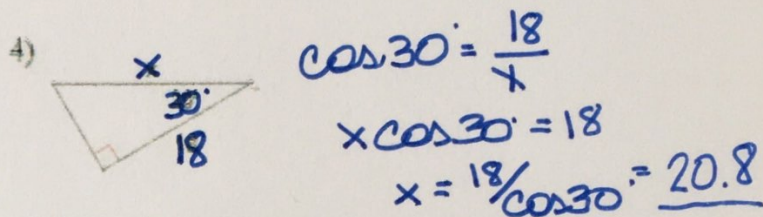 4)
x
30°
18
cos30° = 18/x
xcos30° = 18
x = 18/cos30° = 20.8